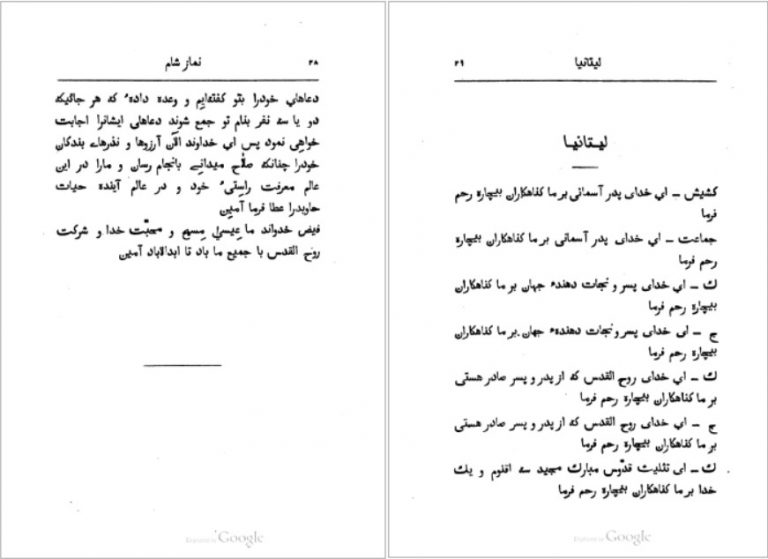 ۲۸ نماز شام
دعاهاي خودرا بتو گفته‌ایم و وعده دادهٔ که هر جائیکه
دو یا سه نفر بنام تو جمع شوند دعاهای ایشانرا اجابت
خواهی نمود پس اي خداوند الآن آرزوها و نذرهای بندگان
خودرا چنانکه صلاح میدانی بانجام رسان و مارا در این
عالم معرفت راستیٔ خود و در عالم آینده حیات
جاویدرا عطا فرما آمین
فیض خدواند ما عیسیٰ مسیح و محبّت خدا و شرکت
روح القدس با جمیع ما باد تا ابدالاباد آمین
Digitized by Google
لیتانیا ۲۹
لیتانیا
کشیش – اي خدای پدر آسمانی بر ما گناهکاران بیچاره رحم
فرما
جماعت – اي خدای پدر آسمانی بر ما گناهکاران بیچاره
رحم فرما
ك – اي خدای پسر و نجات دهندهٔ جهان بر ما گناهکاران
بیچاره رحم فرما
ج – ای خدای پسر و نجات دهندهٔ جهان بر ما گناهکاران
بیچاره رحم فرما
ك – اي خدای روح القدس که از پدر و پسر صادر هستی
بر ما گناهکاران بیچاره رحم فرما
ج – اي خدای روح القدس که از پدر و پسر صادر هستی
بر ما گناهکاران بیچاره رحم فرما
ك – ای تثلیث قدّوس مبارك مجید سه اقنوم و یك
خدا بر ما گناهکاران بیچاره رحم فرما
Digitized by Google